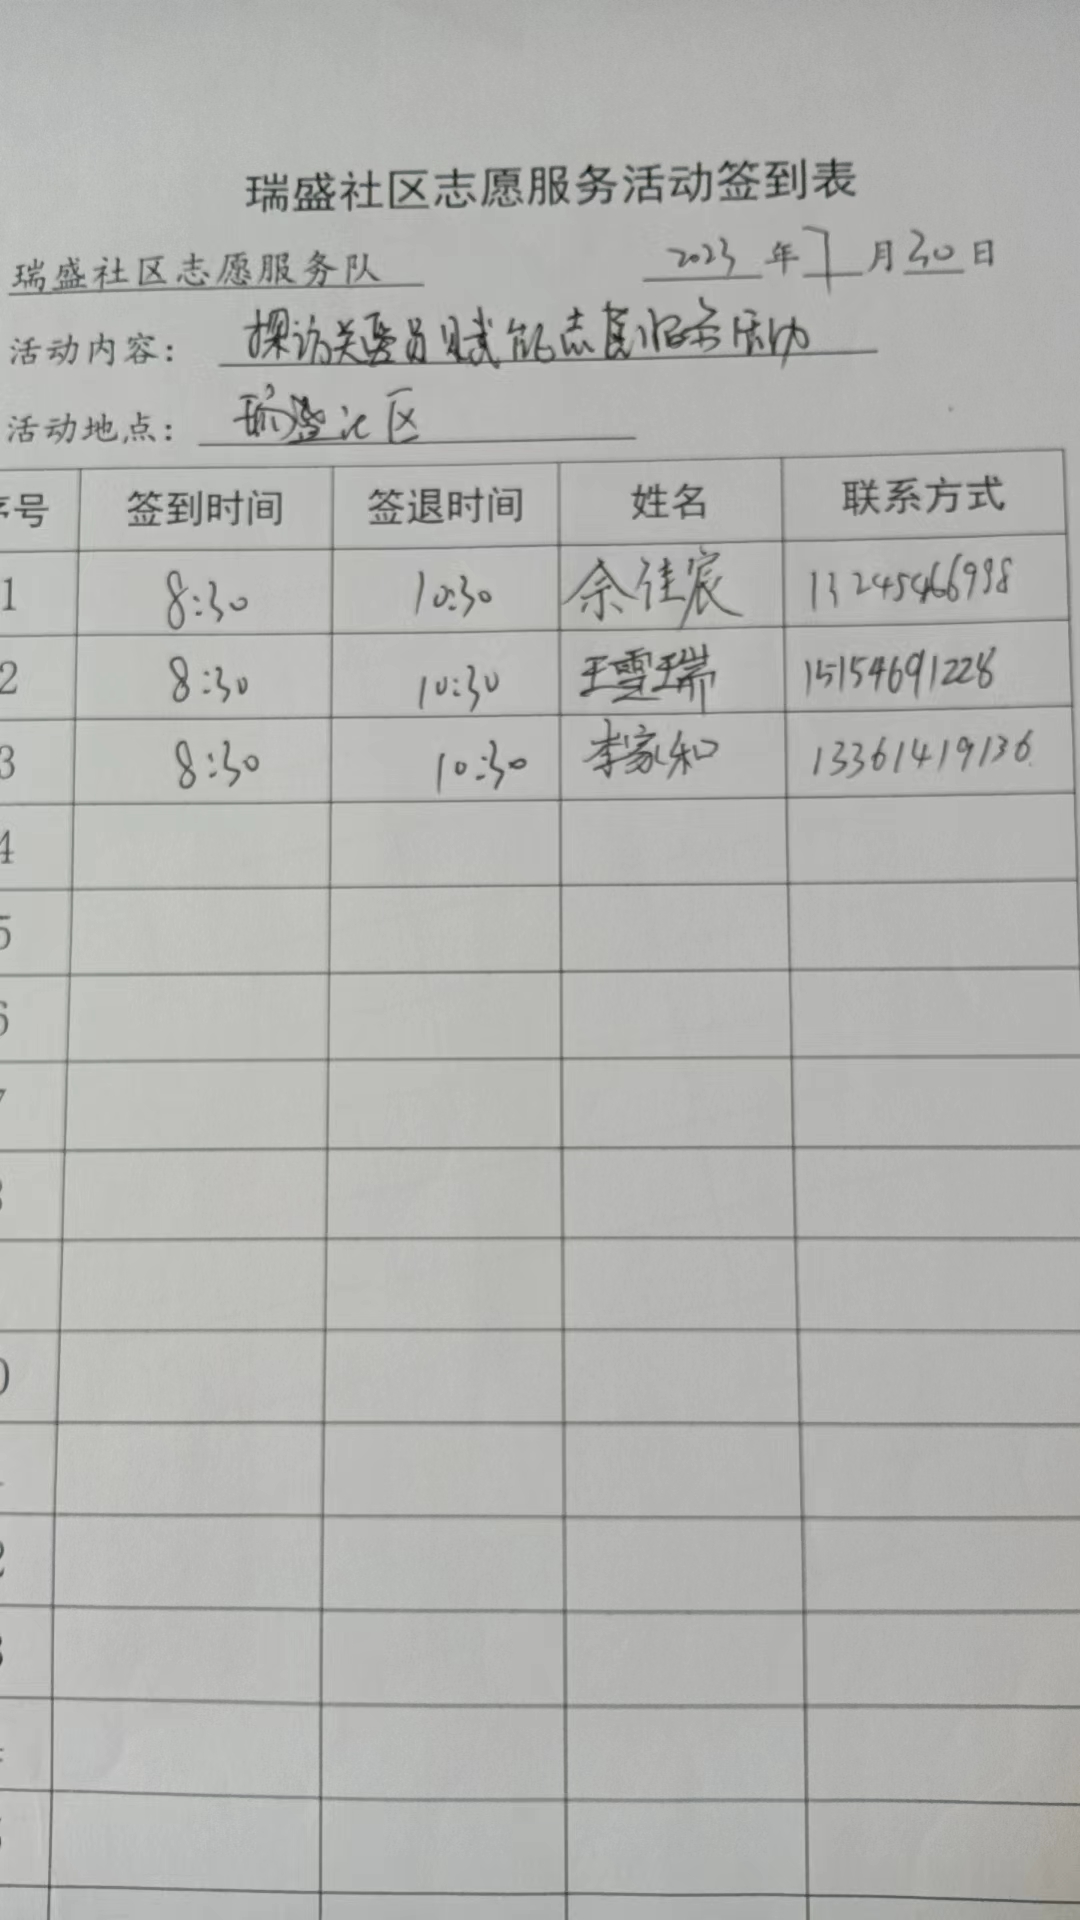 瑞盛社区志愿服务活动签到表
瑞盛社区志愿服务队 2023年7月30日
活动内容：探访关爱员赋能志愿服务活动
活动地点：瑞盛社区
序号 签到时间 签退时间 姓名 联系方式
1 8:30 10:30 余佳宸 13245466998
2 8:30 10:30 王雪瑞 15154691228
3 8:30 10:30 李家和 13361419136
4
5
6
7
8
0
2
3